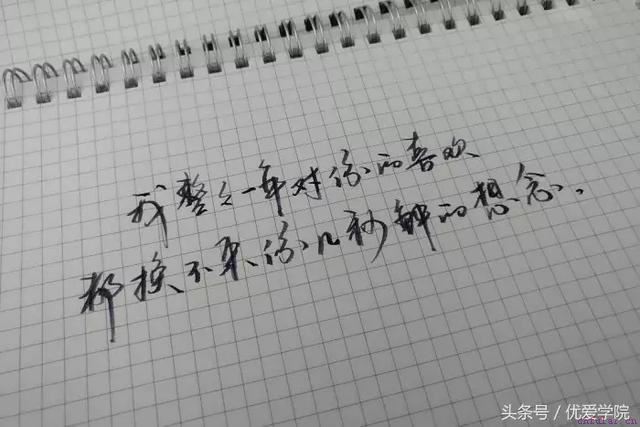 我整整一年对你的喜欢
都换不来你几秒钟的想念.
头条号／优爱学院
cnfdrar.cn